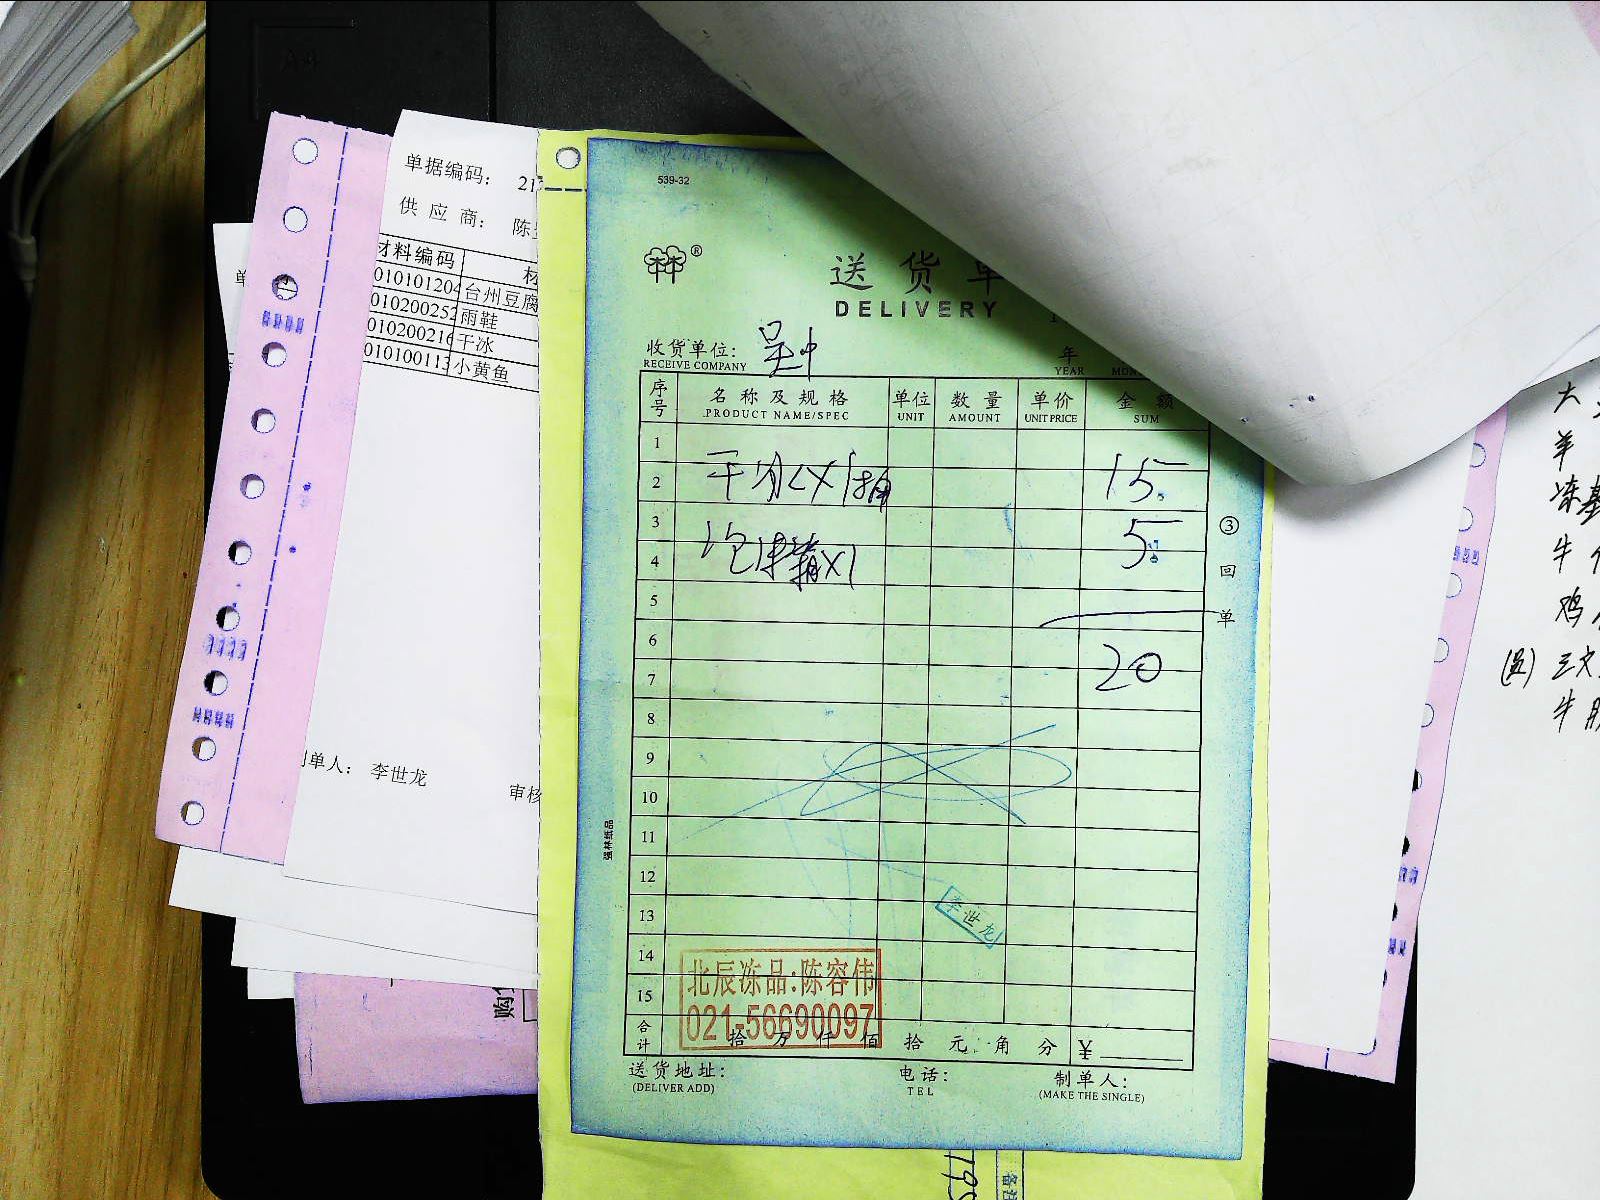 单据编码： 21
供 应 商： 陈
材料编码
010101204 台州豆腐
010200252 雨鞋
010200216 干冰
010100113 小黄鱼
制单人： 李世龙
审核
539-32
®
送 货 单
DELIVERY
收货单位： 吴中
RECEIVE COMPANY
年
YEAR
序号 名 称 及 规 格 单位 数 量 单价 金 额
PRODUCT NAME/SPEC UNIT AMOUNT UNIT PRICE SUM
1
2 干冰X1 15.
3
4 泡沫箱X1 5.
5
6
7 20
8
9
10
11
12
13
14
15
李世龙
北辰冻品:陈容伟
021-56690097
合计 拾 万 仟 佰 拾 元 角 分 ¥
送 货 地 址：
(DELIVER ADD)
电 话：
TEL
制 单 人：
(MAKE THE SINGLE)
③ 回 单
强林纸品
大
羊
冻
牛
鸡
三文
牛